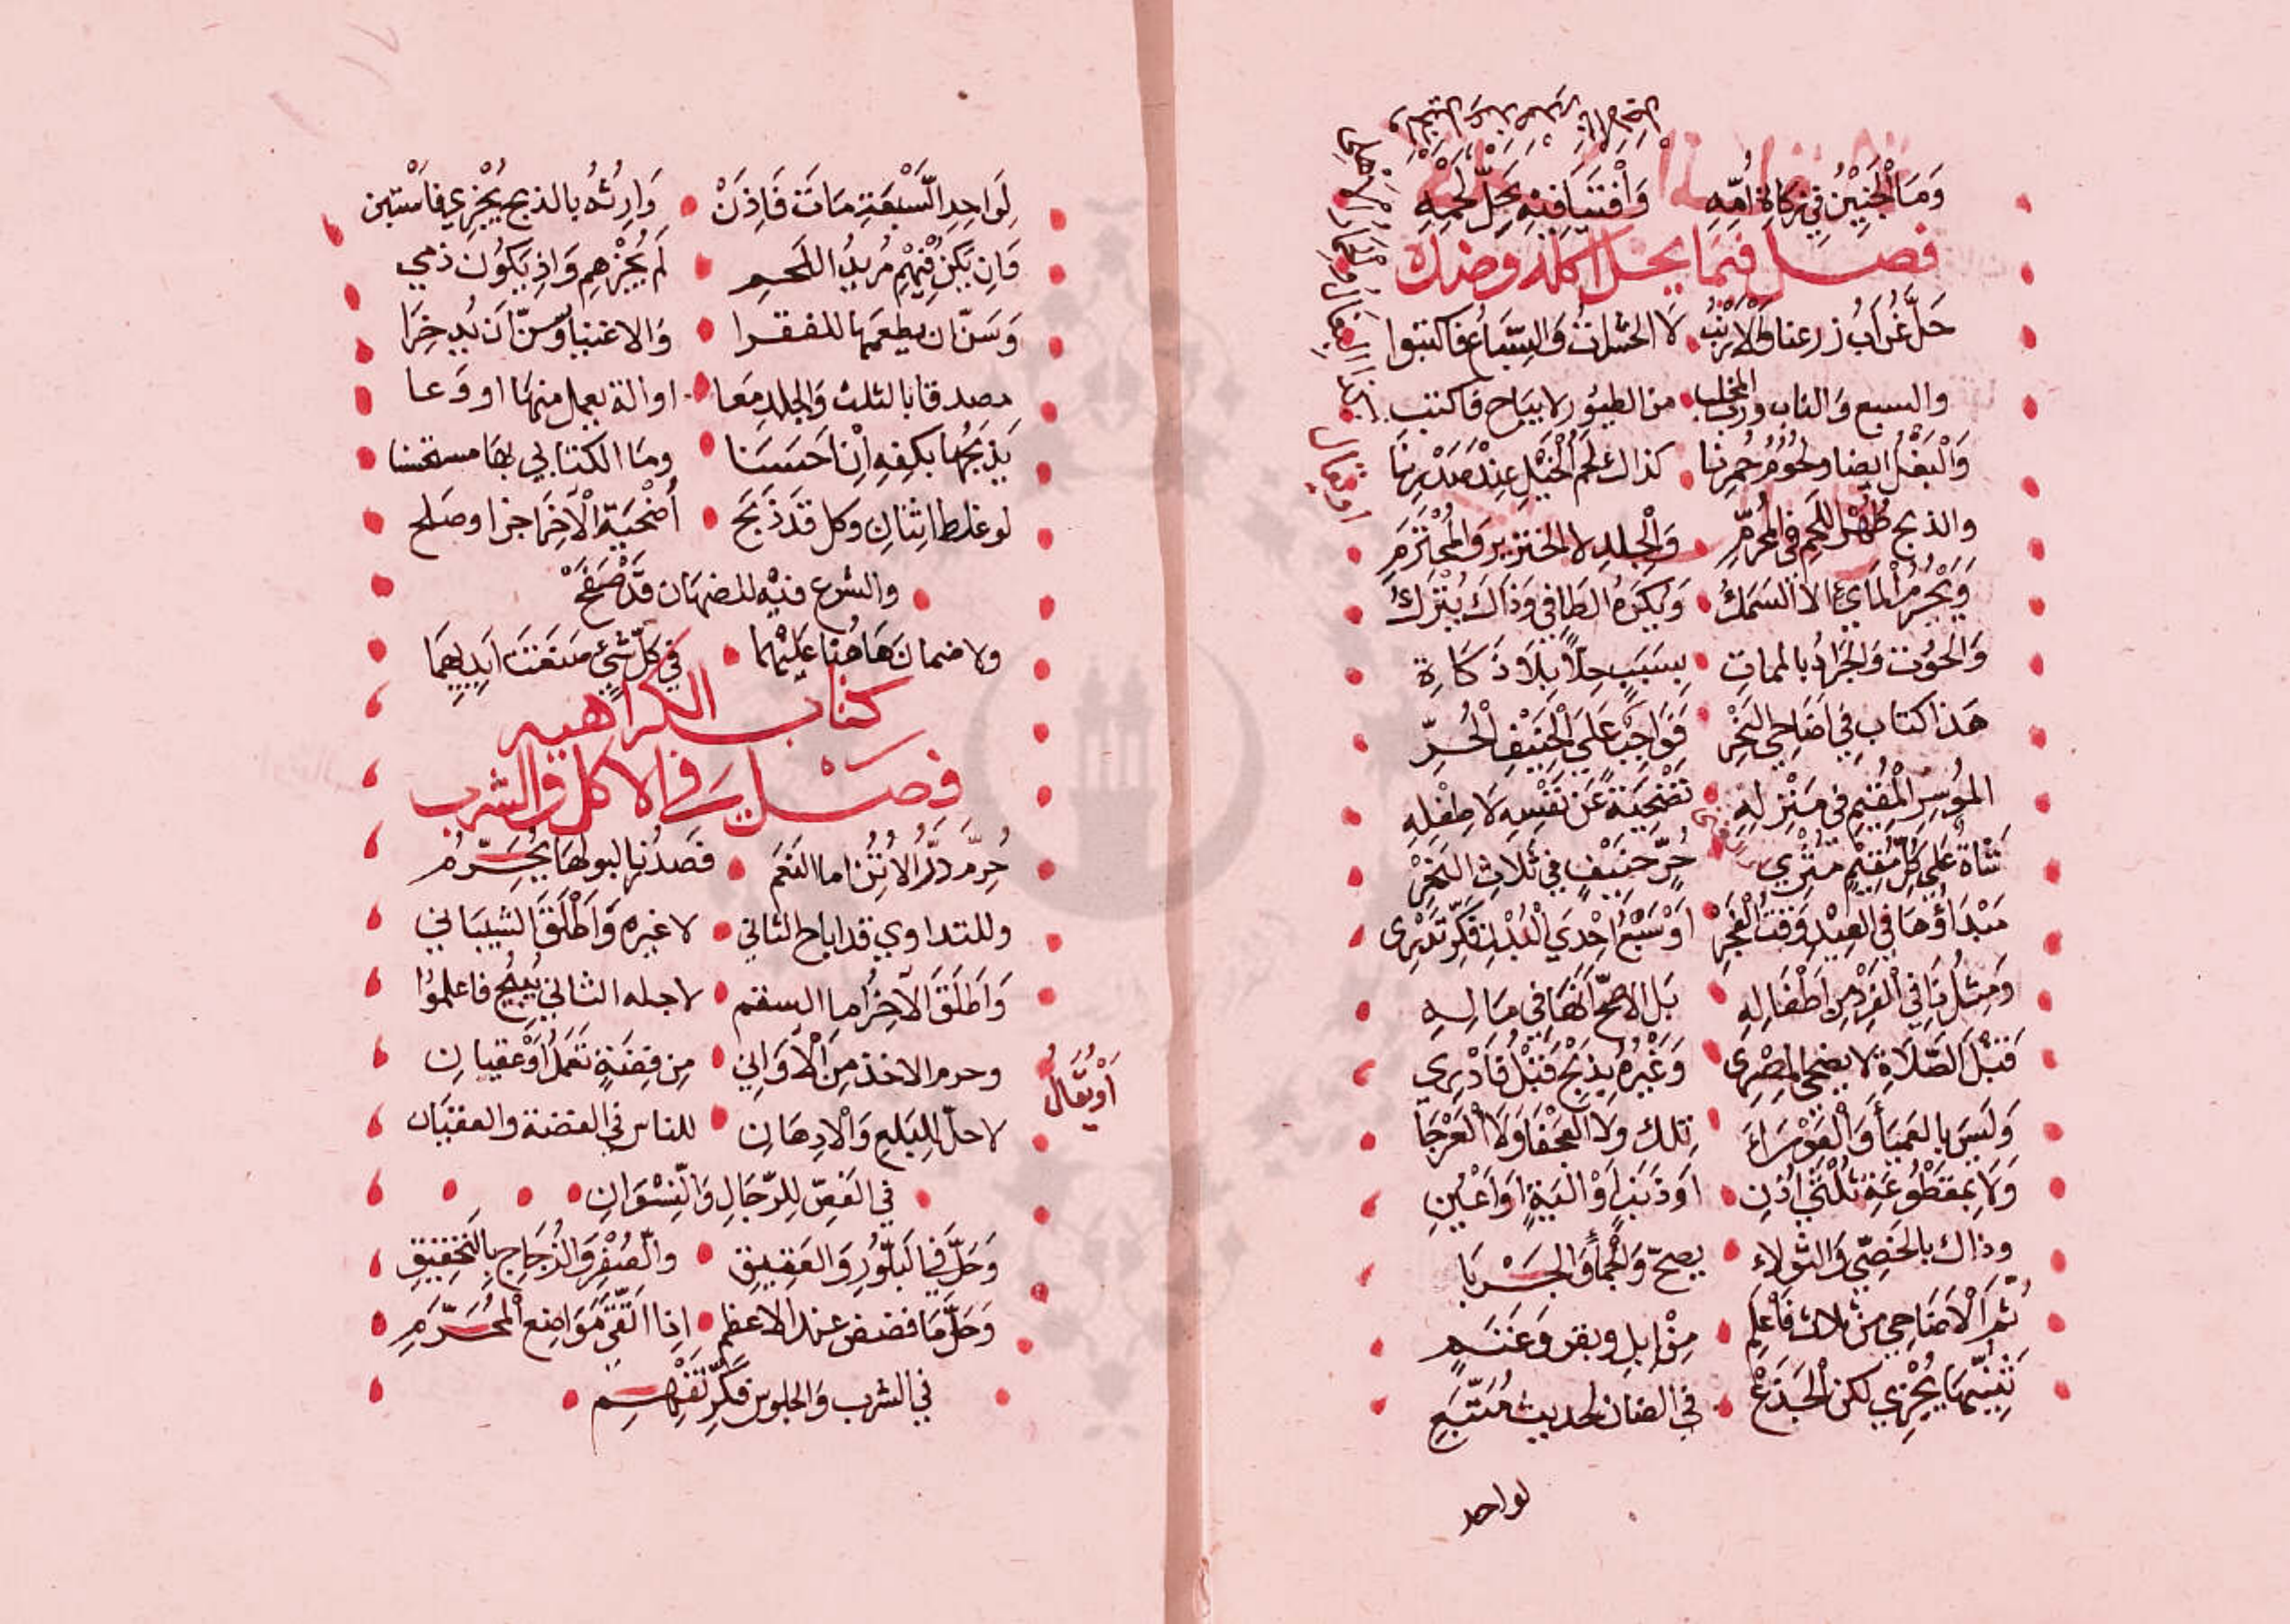 وَمَا الْجَنِيْنُ فِي زكاةِ اُمّهِ وَافْتَيَا فِيْهِ بِحَلِّ لَحْمِهِ
فصل فيما يحل اكله وضده
حَلَّ غُرَابُ زرعنا وَالْاَرْنَبُ لَا الحشراتُ وَالسِّبَاعُ فاكتبوا
والسبع وَالناب وذي المخلب من الطيُورِ لا يبَاح فاكتب
وَالْبَغْلُ ايضا ولحُوُمُ حُمِرنَا كذاك لحم الْخَيْلِ عِنْدَ صَدْرِنَا
والذبح طُهْرُ اللحمِ في المُحرّمِ وَالْجِلدِ لا الخنزير وَالْمُحْتَرَمِ
وَيَحْرُمُ الْمَايِئُ الا السَّمَكُ وَيُكَرَهُ الطَافِي وَذَاكَ يُتْرَكُ
وَالحُوُت وَالجَرَادُ بالممات بِسَبَبٍ حِلّاً بِلَا ذَكَاةِ
هَذا كتاب فِي اَضَاحِي النَحْرِ فَوَاجِبٌ عَلَى الْحَنِيْفِ الْحُرِّ
الموُسِرِ الْمُقِيْمِ فى مَنْزِلهِ تضْحِيَةٌ عَن نَفْسِهِ لَا طِفْلِهِ
شَاةٌ عَلَى كُلِّ مُقِيْمٍ مُثْرِي حُرٍّ حَنِيْفٍ فِي ثَلَاثِ النَحْرِ
مَبْدَاؤُهَا فِي الْعِيْدِ وَقْتُ الْفَجْرِ اوْ سُبْعُ اِحْدَي الْبُدْنِ فَكِّر تَدْرِى
وَمِثْلُنَا فِي الْفَرْدِ مِن اَطْفَالِهِ بَل الاصحّ اَنّهَا فِي مَالِهِ
قَبْلَ الصَّلَاةِ لا يضحي المِصْرِى وَغَيْرُهُ يَذبَحُ قَبْلُ فَادْرِي
وَلَيْسَ بالعَميَا وَالْعَوْرَاءَ تِلكَ ولا العَجْفَا وَلَا الْعَرْجَا
وَلَا بِمقطُوْعَةِ ثُلْثَي اُذُنِ اوَ ذَنَبٍ اَوْ اليَةٍ اوَ اَعْيُنِ
وذاك بالخصِّي وَالثوْلاء يصحّ وَالجمّا وَالجَرْبَا
ثُمَّ الْاَضَاحِي من ثلاث فَاعْلِمِ مِنْ اِبِل وبقر وَغَنَمٍ
ثَنِيّهَا يُجْزِي لكن الْجَذَعْ في الضان لحديث مُتّبَعِ
لواحد
لِوَاحِدِ السَّبْعَةِ مَاتَ فَاِذِنَ وَارِثُهُ بالذبح يُجْزِي فاسْتبن
وَاِن يَكُن فِيْهِم مُرِيدُ اللحمِ لَم يُجْزِهِم وَاذِ يَكُوُن ذمي
وَسَنّ ان يطعمهَا للفقرا وَالاغنيا وَسنّ اَن يُدخِرَا
مصدقا بالثلث وَالجلد مَعا او الة يعمل منهَا او وَعا
يَذبَحُهَا بكفِه اِنْ اَحسَنَا ومَا الكتابي بهَا مستحسنا
لو غلطا اثنانِ وكل قَد ذَبَحَ اُضْحَيَةَ الْآخَرِ اجزا وصَلح
والشرع فيْه للضمَان قَد صَفَحَ
ولا ضمانَ هَاهُنا عَلَيْهِمَا في كُلّ شَيْئٍ صَنَعَتَ اَيَدِيهِمَا
كتاب الكراهيه
فصل في الاكل والشرب
حُرِّمَ دَرُّ الاُتُنُ اما النَعَم فصدُرنا لبولهَا يُحَرِّمُ
وللتداوي قد اباح الثاني لا غيره وَاَطْلَقَ الشيبَاني
وَاَطلَقَ الآخِرُ اما السقم لاجله الثاني يُبِيْحُ فاعلموُا
وحرم الاخذ مِنَ الْاَوَانِي مِن فِضَةٍ تَعَمَلُ اَوْ عقيانِ
اَوْ يُقَالُ
لا حلّ لِلبَلعِ وَالْادِهَانِ للناس في الفضة والعقيَان
فِي الفَصِّ لِلرّجَالِ وَالنِّسْوَانِ
وَحَلَّ فِي البَلّوُرِ وَالعَقِيقِ وَالصُفْرِ وَالزُجَاجِ بِالتَحْقِيقِ
وَحَلَّ مَا فضض عند الاعظم اِذا اتّقَى مَوَاضِعَ الْمُحَرّمِ
في الشرب وَالجلوس فَكِّر تَفْهَم